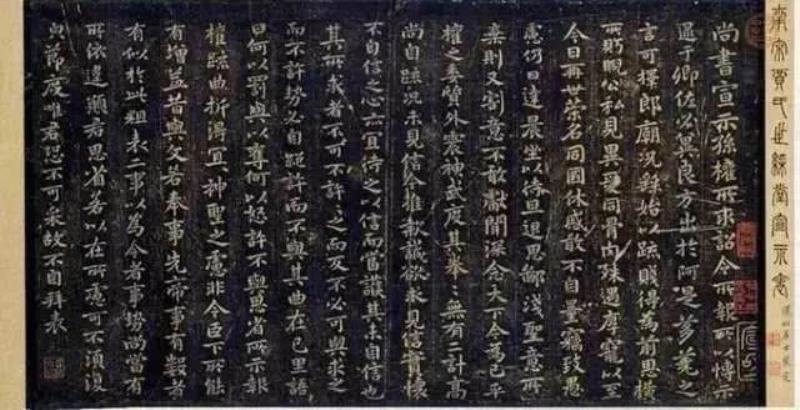 宋賈氏世綵堂宣示表
尚書宣示孫權所求詔令所報所以博示
逮于卿佐必冀良方出於阿是芻蕘之
言可擇郎廟況繇始以疏賤得為前恩橫
所盱睨公私見異愛同骨肉殊遇厚寵以至
今日再世榮名同國休慼敢不自量竊致愚
慮仍日達晨坐以待旦退思鄙淺聖意所
棄則又割意不敢獻聞深念天下今為已平
權之委質外震神武度其拳々無有二計高
尚自疏況未見信今推款誠欲求見信實懷
不自信之心亦宜待之以信而當護其未自信也
其所求者不可不許許之而反不必可與求之
而不許勢必自絕許而不與其曲在己里語
曰何以罰與以奪何以怒許不與思省所示報
權疏曲折得宜神聖之慮非今臣下所能
有增益昔與文若奉事先帝事有數者
有似於此粗表二事以為今者事勢尚當有
所依違願君思省若以在所慮可不須復
皃節度唯君恐不可采故不自拜表